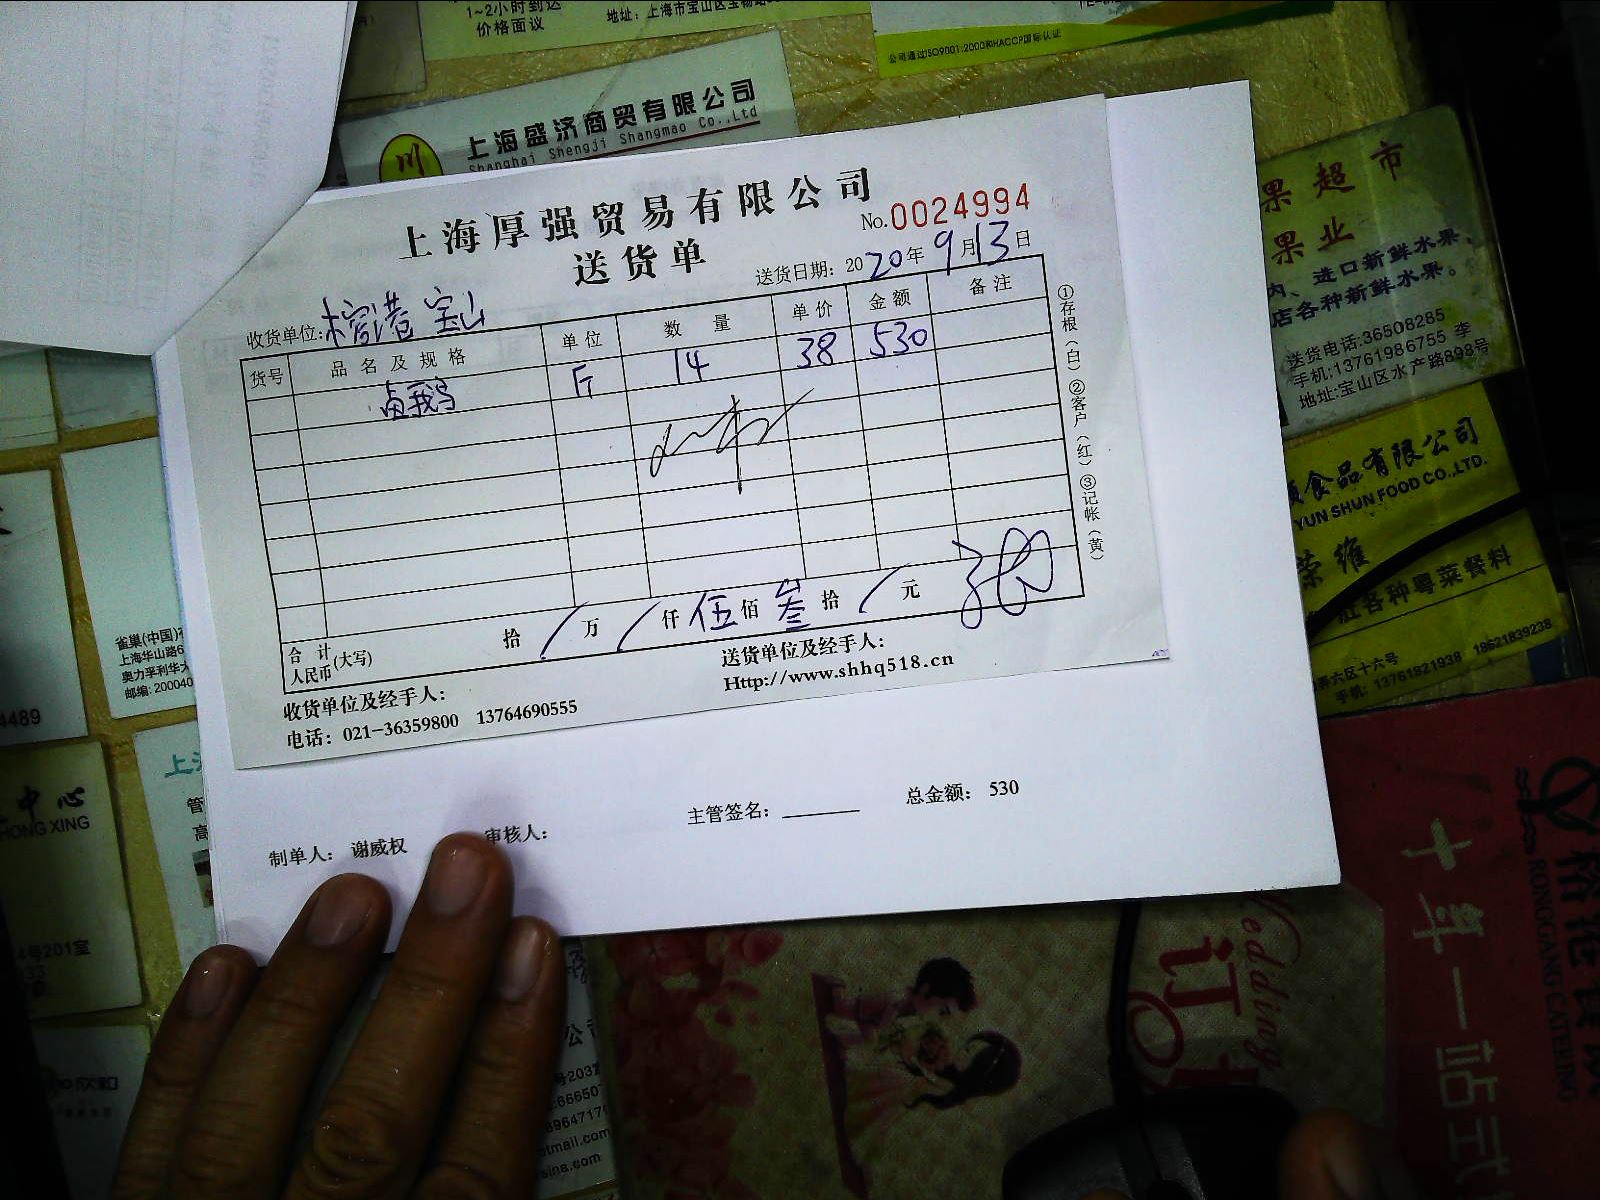 1~2小时到达
价格面议
公司通过ISO9001:2000和HACCP国际认证
上海盛济商贸有限公司
Shanghai Shengji Shangmao Co.,Ltd
上海厚强贸易有限公司
No.0024994
送货单
送货日期: 2020年9月13日
收货单位: 榕港宝山
货号 品名及规格 单位 数量 单价 金额 备注
卤鹅 斤 14 38 530
①存根(白)②客户(红)③记帐(黄)
合计
人民币(大写) 拾 / 万 / 仟 伍 佰 叁 拾 / 元
收货单位及经手人:
送货单位及经手人:
电话: 021-36359800 13764690555
Http://www.shhq518.cn
制单人: 谢威权 审核人: 主管签名: 总金额: 530
果超市
果业
内、进口新鲜水果、
店各种新鲜水果。
送货电话:36508285
手机:13761986755 李
地址:宝山区水产路898号
食品有限公司
YUN SHUN FOOD CO.,LTD.
荣维
各种粤菜餐料
弄六区十六号
手机: 13761821938 18621839238
雀巢(中国)有
上海华山路6
奥力孚利华大
邮编: 200040
4489
中心
HONG XING
4号201室
欣和
Wedding
订
十年一站式
RONGGANG CATERING